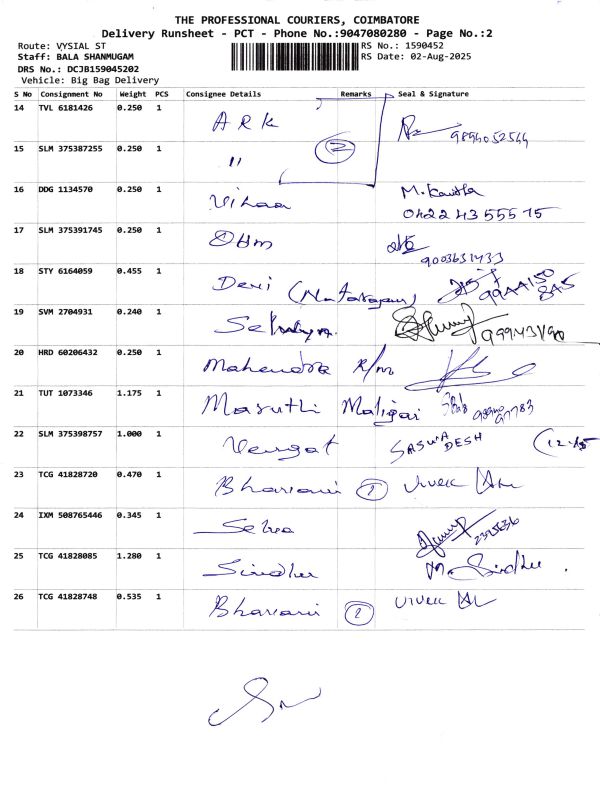 THE PROFESSIONAL COURIERS, COIMBATORE
Delivery Runsheet - PCT - Phone No.:9047080280 - Page No.:2
Route: VYSIAL ST
RS No.: 1590452
Staff: BALA SHANMUGAM
RS Date: 02-Aug-2025
DRS No.: DCJB159045202
Vehicle: Big Bag Delivery
S No Consignment No Weight PCS Consignee Details Remarks Seal & Signature
14 TVL 6181426 0.250 1 ARK 9894052544
15 SLM 375387255 0.250 1 " 2
16 DDG 1134570 0.250 1 Vihaa M. Kavitha
0422 43 555 75
17 SLM 375391745 0.250 1 Ohm
9003631433
18 STY 6164059 0.455 1 Devi (Natarajan) 9944150
845
19 SVM 2704931 0.240 1
20 HRD 60206432 0.250 1 Mahendra R/m
21 TUT 1073346 1.175 1 Maruthi Maligai
22 SLM 375398757 1.000 1 Vengat SASWA DESH
23 TCG 41828720 0.470 1 Bhavani 2 Vivek
24 IXM 508765446 0.345 1 Selva
25 TCG 41828085 1.280 1 Sindhu M. Sindhu
26 TCG 41828748 0.535 1 Bhavani 2 Vivek